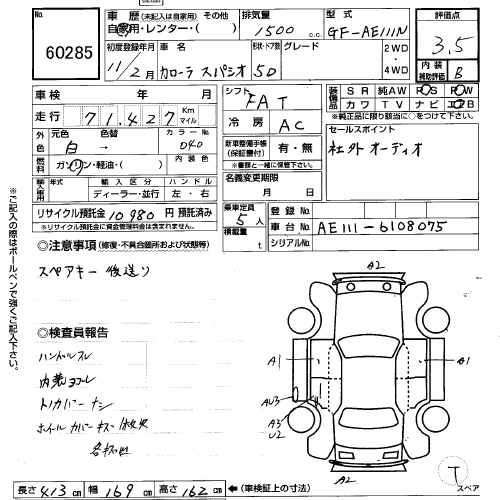 60285
車歴 (未記入は自家用) その他
自家用・レンター・( )
排気量
1500 cc
型式
GF-AE111N
評価点
3.5
初度登録年月
11/2月
車名
カローラ スパシオ
形状・ドア数
5D
グレード
2WD
4WD
内装
補助評価
B
車検 年 月
走行 71,427 Km マイル
外色 元色 色替 カラーNo.
白 → 040
燃料 ガソリン・軽油・( ) 内装色
輸入車用 年式 輸入区分 ハンドル
ディーラー・並行 左・右
リサイクル預託金 10980 円 預託済み
※リサイクル預託金に資金管理料金は含まれません。
シフト
FAT
冷房
AC
新車整備手帳
(保証書付)
有・無
※書類と一緒に保管して下さい。
名義変更期限
月 日
乗車定員
5 人
積載量
t
装備品
SR 純AW PS PW
カワ TV ナビ エアB
※純正品に限りますので○をつけて下さい
セールスポイント
社外オーディオ
登録No.
車台No. AE111-6108075
シリアルNo.
◎注意事項 (修復・不具合箇所および状態等)
スペアキー後送り
◎検査員報告
ハンドルスレ
内装ヨゴレ
トノカバーナシ
ホイールカバーキズ
※ご記入の際はボールペンで強くご記入下さい。
A2
A1
B1
AU3
A3
U2
A2
T
スペア
長さ 413 cm 幅 169 cm 高さ 162 cm ←(車検証上の寸法)